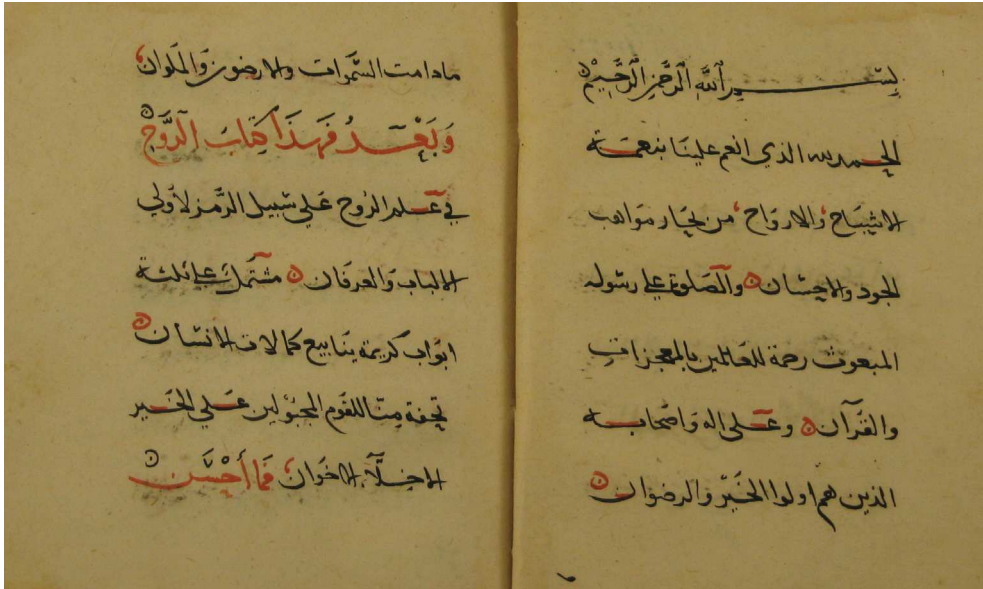 بسم الله الرحمن الرحيم
الحمد لله الذي انعم علينا بنعمة
الاشباح والارواح من بحار مواهب
الجود والاحسان والصلوة على رسوله
المبعوث رحمة للعالمين بالمعجزات
والقرآن وعلى اله واصحابه
الذين هم اولوا الخير والرضوان
مادامت السموات والارضون والملوان
وَبَعْدُ فَهَذَا كِتَابُ الرُّوحِ
في علم الروح على سبيل الرمز لأولي
الالباب والعرفان مشتمل على ثلثة
ابواب كريمة ينابيع كمالات الانسان
تحفة منّا للقوم المجبولين على الخير
الاخلّاء الاخوان فَمَا أَحْسَن